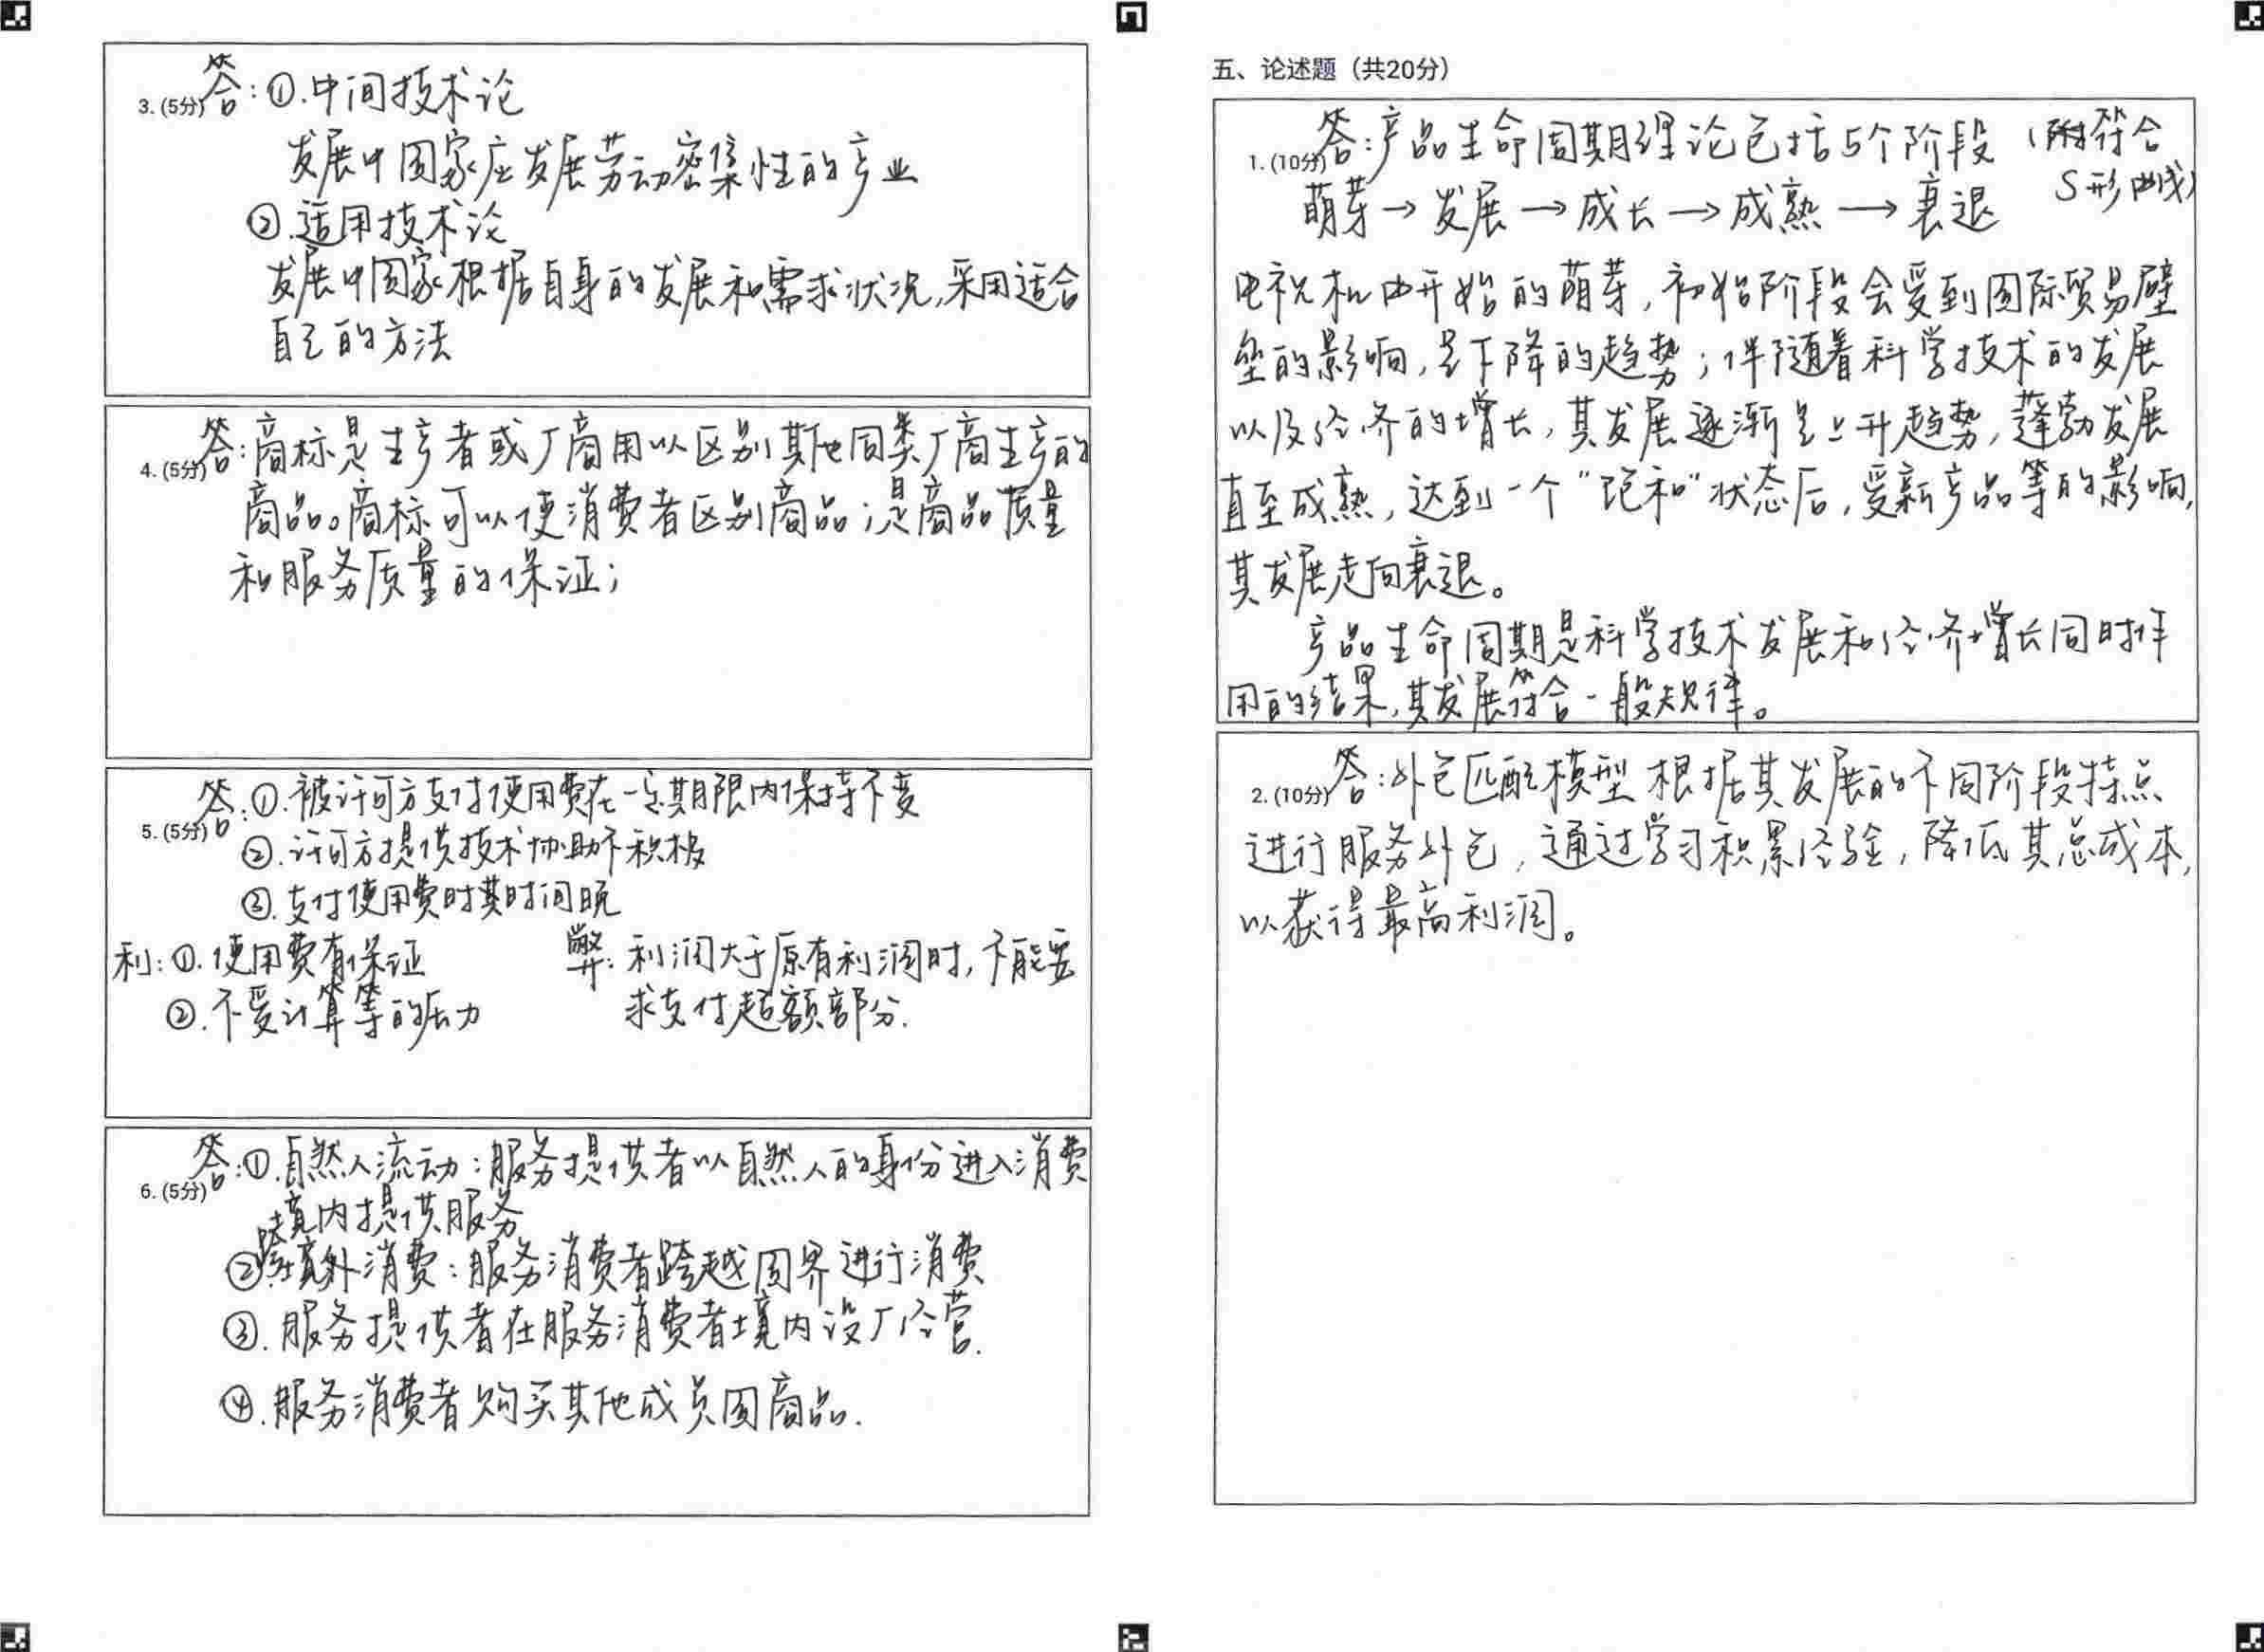 3. (5分) 答:①.中间技术论
发展中国家应发展劳动密集性的产业
②.适用技术论
发展中国家根据自身的发展和需求状况,采用适合
自己的方法
4. (5分) 答:商标是生产者或厂商用以区别其他同类厂商生产的
商品。商标可以使消费者区别商品;是商品质量
和服务质量的保证;
5. (5分) 答:①.被许可方支付使用费在一定期限内保持不变
②.许可方提供技术协助不积极
③.支付使用费时其时间晚
利:①.使用费有保证
②.不受计算等的压力
弊:利润大于原有利润时,不能要
求支付超额部分.
6. (5分) 答:①.自然人流动:服务提供者以自然人的身份进入消费
境内提供服务
②境外消费:服务消费者跨越国界进行消费
③.服务提供者在服务消费者境内设厂经营.
④.服务消费者购买其他成员国商品.
五、论述题(共20分)
1. (10分) 答:产品生命周期理论包括5个阶段 (符合
S形曲线)
萌芽→发展→成长→成熟→衰退
电视机由开始的萌芽,初始阶段会受到国际贸易壁
垒的影响,呈下降的趋势;伴随着科学技术的发展
以及经济的增长,其发展逐渐呈上升趋势,蓬勃发展
直至成熟,达到一个“饱和”状态后,受新产品等的影响,
其发展走向衰退。
产品生命周期是科学技术发展和经济增长同时作
用的结果,其发展符合一般规律。
2. (10分) 答:外包匹配模型根据其发展的不同阶段特点
进行服务外包,通过学习积累经验,降低其总成本,
以获得最高利润。